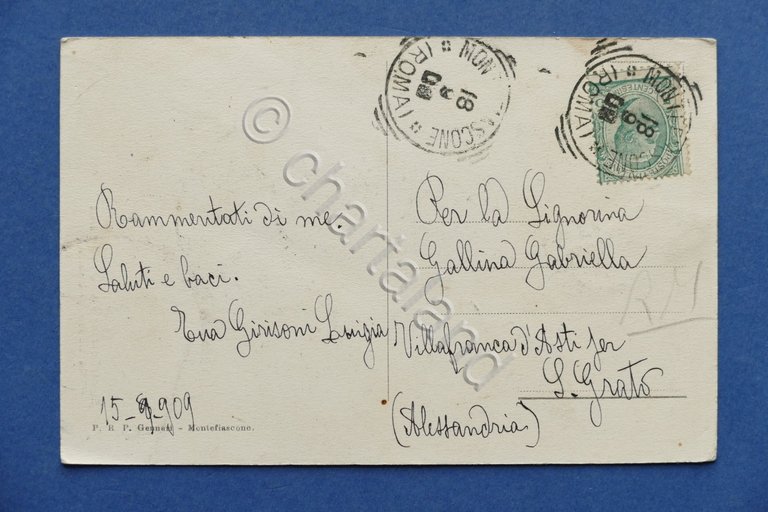 MONTEFIASCONE
(ROMA)
18
9
09
MONTEFIASCONE
(ROMA)
18
9
09
Rammentati di me.
Saluti e baci.
Tua Girisoni Luigia
15-9-909
Per la Signorina
Gallina Gabriella
Villafranca d'Asti per
S. Grato
(Alessandria)
RM
P. R. P. Gennari - Montefiascone.
© chartaland